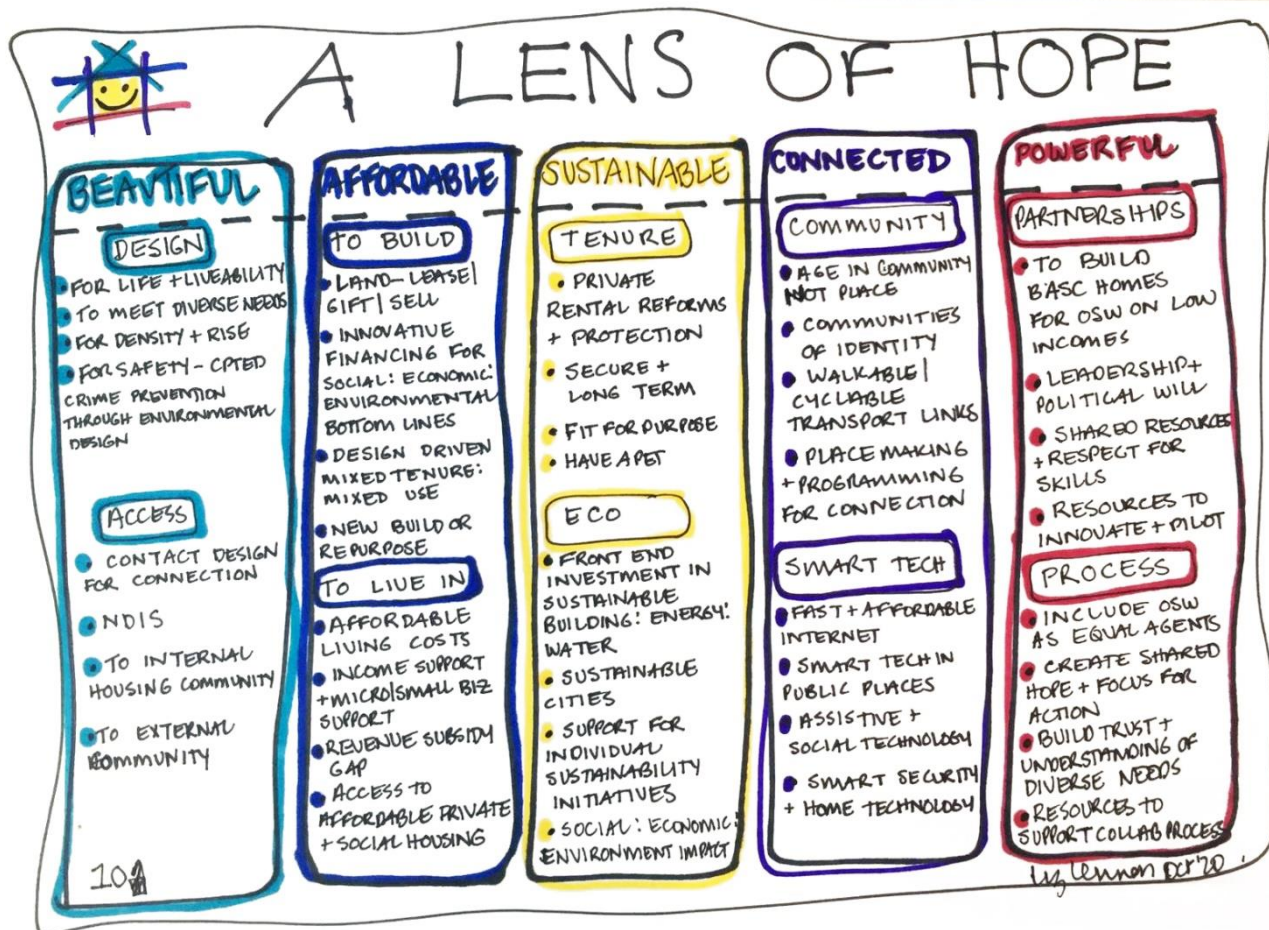 A LENS OF HOPE
BEAUTIFUL
DESIGN
FOR LIFE + LIVEABILITY
TO MEET DIVERSE NEEDS
FOR DENSITY + RISE
FOR SAFETY - CPTED
CRIME PREVENTION
THROUGH ENVIRONMENTAL
DESIGN
ACCESS
CONTACT DESIGN
FOR CONNECTION
NDIS
TO INTERNAL
HOUSING COMMUNITY
TO EXTERNAL
COMMUNITY
10
AFFORDABLE
TO BUILD
LAND-LEASE/
GIFT/SELL
INNOVATIVE
FINANCING FOR
SOCIAL: ECONOMIC:
ENVIRONMENTAL
BOTTOM LINES
DESIGN DRIVEN
MIXED TENURE:
MIXED USE
NEW BUILD OR
REPURPOSE
TO LIVE IN
AFFORDABLE
LIVING COSTS
INCOME SUPPORT
+MICRO/SMALL BIZ
SUPPORT
REVENUE SUBSIDY
GAP
ACCESS TO
AFFORDABLE PRIVATE
+ SOCIAL HOUSING
SUSTAINABLE
TENURE
PRIVATE
RENTAL REFORMS
+ PROTECTION
SECURE +
LONG TERM
FIT FOR PURPOSE
HAVE A PET
ECO
FRONT END
INVESTMENT IN
SUSTAINABLE
BUILDING: ENERGY:
WATER
SUSTAINABLE
CITIES
SUPPORT FOR
INDIVIDUAL
SUSTAINABILITY
INITIATIVES
SOCIAL: ECONOMIC:
ENVIRONMENT IMPACT
CONNECTED
COMMUNITY
AGE IN COMMUNITY
NOT PLACE
COMMUNITIES
OF IDENTITY
WALKABLE/
CYCLABLE
TRANSPORT LINKS
PLACE MAKING
+ PROGRAMMING
FOR CONNECTION
SMART TECH
FAST + AFFORDABLE
INTERNET
SMART TECH IN
PUBLIC PLACES
ASSISTIVE +
SOCIAL TECHNOLOGY
SMART SECURITY
+ HOME TECHNOLOGY
POWERFUL
PARTNERSHIPS
TO BUILD
BASC HOMES
FOR OSW ON LOW
INCOMES
LEADERSHIP+
POLITICAL WILL
SHARED RESOURCES
+ RESPECT FOR
SKILLS
RESOURCES TO
INNOVATE + PILOT
PROCESS
INCLUDE OSW
AS EQUAL AGENTS
CREATE SHARED
HOPE + FOCUS FOR
ACTION
BUILD TRUST +
UNDERSTANDING OF
DIVERSE NEEDS
RESOURCES TO
SUPPORT COLLAB PROCESS
liz lennon Oct 20